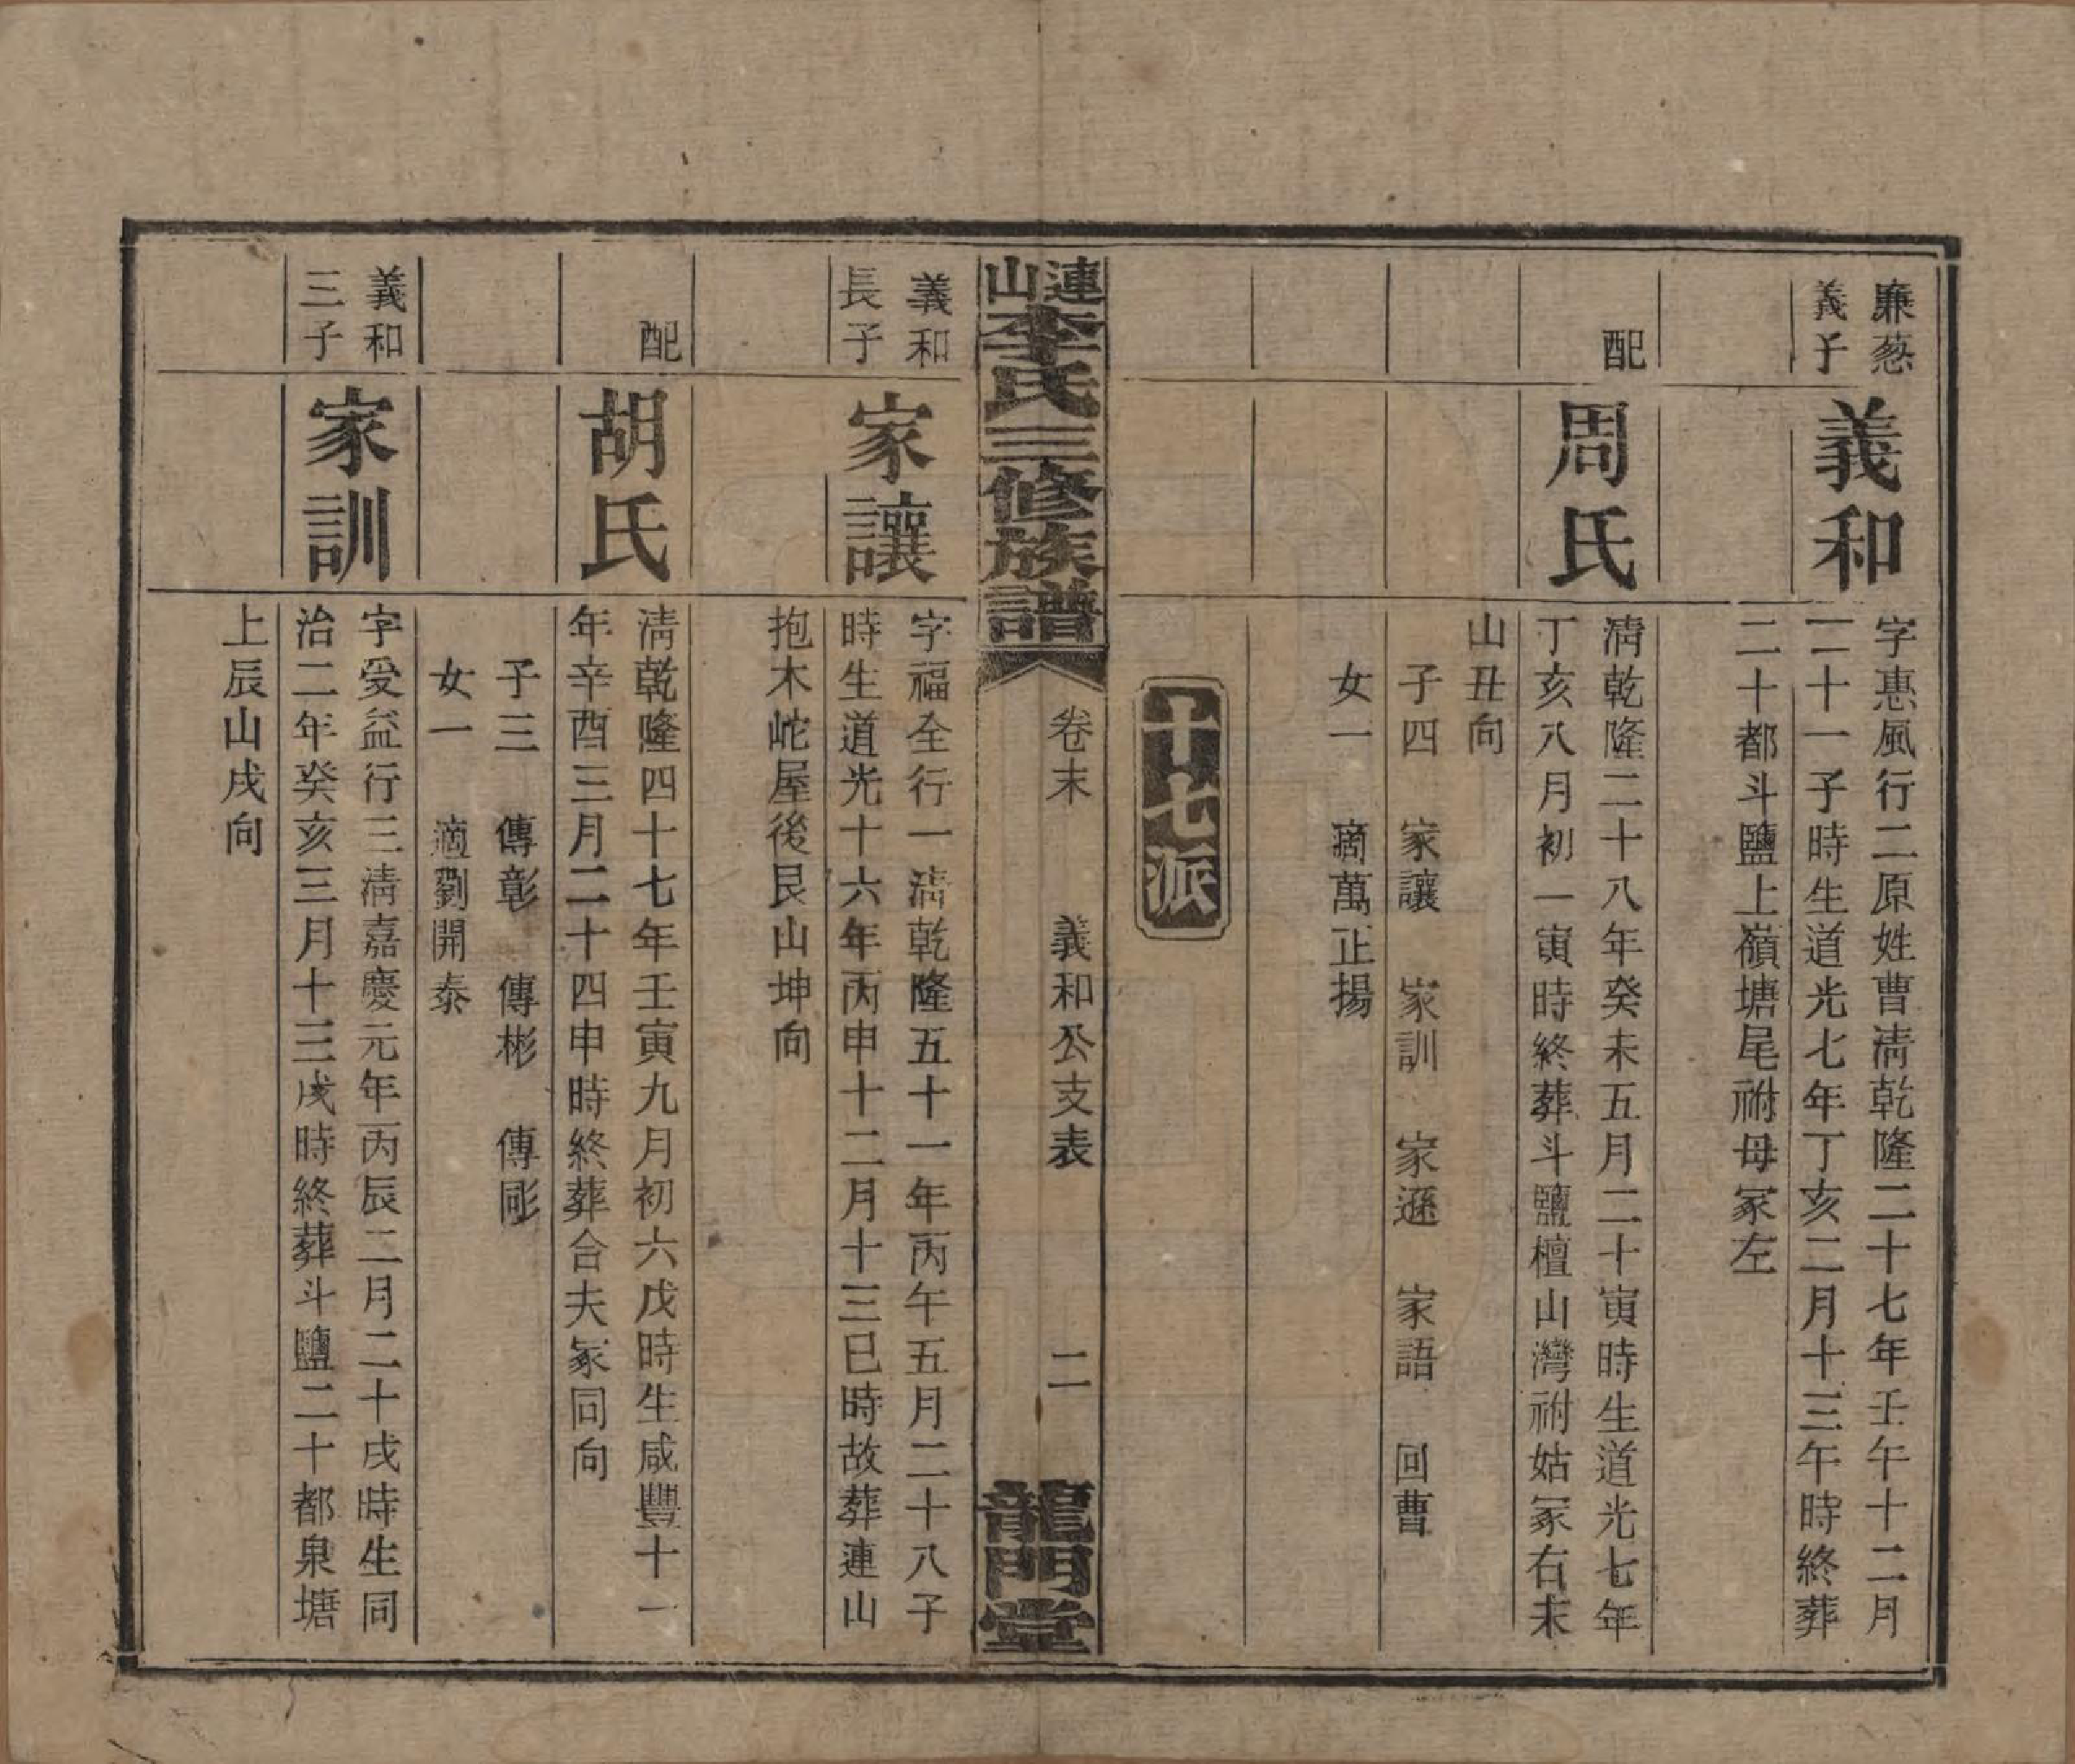 廉慈
義子
義和
字惠風行二原姓曹淸乾隆二十七年壬午十二月
二十一子時生道光七年丁亥二月十三午時終葬
二十都斗鹽上嶺塘尾祔母冢左
配
周氏
淸乾隆二十八年癸未五月二十寅時生道光七年
丁亥八月初一寅時終葬斗鹽檀山灣祔姑冢右未
山丑向
子四　家讓　家訓　家遜　家語　回曹
女一　適萬正揚
十七派
連山李氏三修族譜
卷末　義和公支表　二
龍門堂
義和
長子
家讓
字福全行一淸乾隆五十一年丙午五月二十八子
時生道光十六年丙申十二月十三巳時故葬連山
抱木岮屋後艮山坤向
配
胡氏
淸乾隆四十七年壬寅九月初六戊時生咸豐十一
年辛酉三月二十四申時終葬合夫冢同向
子三　傳彰　傳彬　傳彫
女一　適劉開泰
義和
三子
家訓
字受益行三淸嘉慶元年丙辰二月二十戌時生同
治二年癸亥三月十三戌時終葬斗鹽二十都泉塘
上辰山戌向